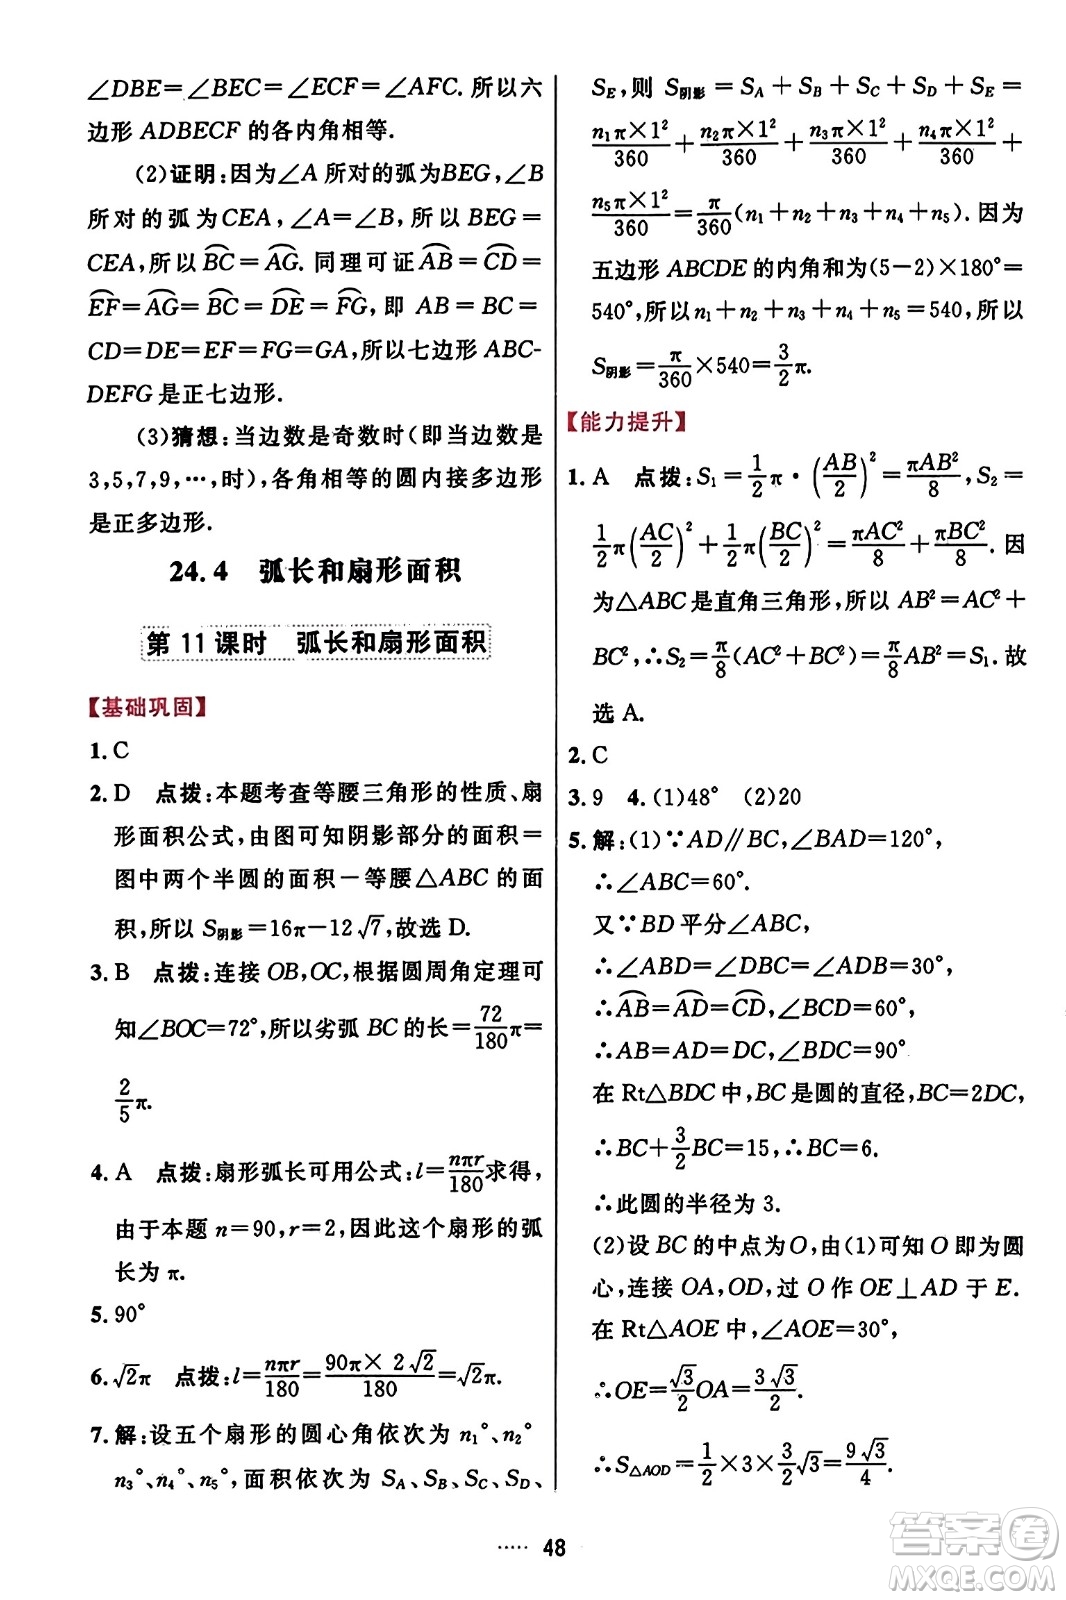 ∠DBE=∠BEC=∠ECF=∠AFC.所以六
边形 ADBECF 的各内角相等.
(2)证明:因为∠A 所对的弧为BEG,∠B
所对的弧为CEA,∠A=∠B,所以 BEG=
CEA,所以 B͡C=A͡G. 同理可证 A͡B=C͡D=
E͡F=A͡G=B͡C=D͡E=F͡G,即 AB=BC=
CD=DE=EF=FG=GA,所以七边形 ABC-
DEFG 是正七边形.
(3)猜想:当边数是奇数时(即当边数是
3,5,7,9,…,时),各角相等的圆内接多边形
是正多边形.
24.4 弧长和扇形面积
第 11 课时 弧长和扇形面积
【基础巩固】
1. C
2. D 点拨:本题考查等腰三角形的性质、扇
形面积公式,由图可知阴影部分的面积=
图中两个半圆的面积-等腰△ABC 的面
积,所以 S阴影=16π-12√7,故选 D.
3. B 点拨:连接 OB,OC,根据圆周角定理可
知∠BOC=72°,所以劣弧 BC 的长=72/180 π=
2/5 π.
4. A 点拨:扇形弧长可用公式:l=nπr/180求得,
由于本题 n=90,r=2,因此这个扇形的弧
长为 π.
5. 90°
6. √2π 点拨:l=nπr/180=90π×2√2/180=√2π.
7. 解:设五个扇形的圆心角依次为 n₁°、n₂°
n₃°、n₄°、n₅°,面积依次为 S_A、S_B、S_C、S_D、
S_E,则 S阴影=S_A+S_B+S_C+S_D+S_E=
n₁π×1²/360+n₂π×1²/360+n₃π×1²/360+n₄π×1²/360+
n₅π×1²/360=π/360(n₁+n₂+n₃+n₄+n₅). 因为
五边形 ABCDE 的内角和为(5-2)×180°=
540°,所以 n₁+n₂+n₃+n₄+n₅=540,所以
S阴影=π/360×540=3/2 π.
【能力提升】
1. A 点拨:S₁=1/2 π·(AB/2)²=πAB²/8,S₂=
1/2 π(AC/2)²+1/2 π(BC/2)²=πAC²/8+πBC²/8. 因
为△ABC 是直角三角形,所以 AB²=AC²+
BC²,∴S₂=π/8(AC²+BC²)=π/8 AB²=S₁.故
选 A.
2. C
3. 9 4. (1)48° (2)20
5. 解:(1)∵AD∥BC,∠BAD=120°,
∴∠ABC=60°.
又∵BD 平分∠ABC,
∴∠ABD=∠DBC=∠ADB=30°,
∴A͡B=A͡D=C͡D,∠BCD=60°,
∴AB=AD=DC,∠BDC=90°
在 Rt△BDC 中,BC 是圆的直径,BC=2DC,
∴BC+3/2 BC=15,∴BC=6.
∴此圆的半径为 3.
(2)设 BC 的中点为 O,由(1)可知 O 即为圆
心,连接 OA,OD,过 O 作 OE⊥AD 于 E.
在 Rt△AOE 中,∠AOE=30°,
∴OE=√3/2 OA=3√3/2.
∴S△AOD=1/2×3×3/2√3=9√3/4.
48
答案圈
MXQE.COM